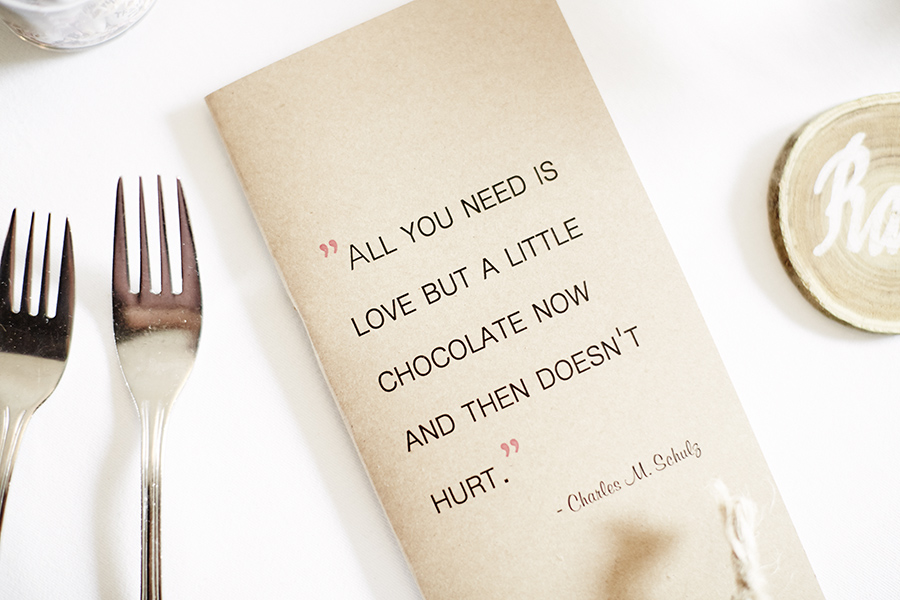 ”ALL YOU NEED IS
LOVE BUT A LITTLE
CHOCOLATE NOW
AND THEN DOESN'T
HURT.”
- Charles M. Schulz